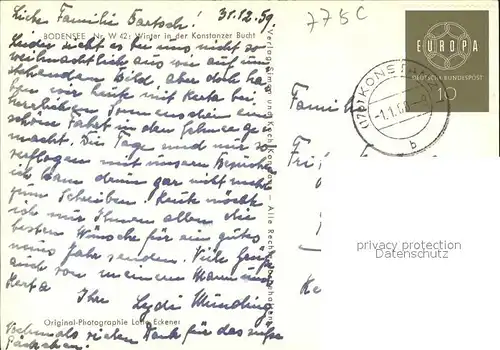 Liebe Familie Bartsch! 31.12.59.
775C
BODENSEE Nr. W 42: Winter in der Konstanzer Bucht
Leider sieht es bei uns nicht so
weihnachtlich aus wie auf um-
stehendem Bild aber doch ha-
ben wir heute mit Herta bei
herrlichem Sonnenschein eine
schöne Fahrt in den Schnee ge-
macht. Die Tage sind nur so
verflogen mit unserem Besuche
ich kam drum gar nicht mehr
zum Schreiben. Heute möcht
ich nur Ihnen allen die
besten Wünsche für ein gutes
neues Jahr senden. Viele Grüße
auch von meinem Mann und
Herta Ihre Lydi
Original-Photographie Lotte Eckener
Nochmals vielen Dank für das süße
Päckchen.
Verlag
Konstanz — Alle Rechte vorbehalten
EUROPA
DEUTSCHE BUNDESPOST
10
(17b) KONSTANZ
-1.1.60.
b
Famil
Fri
Ke
privacy protection
Datenschutz